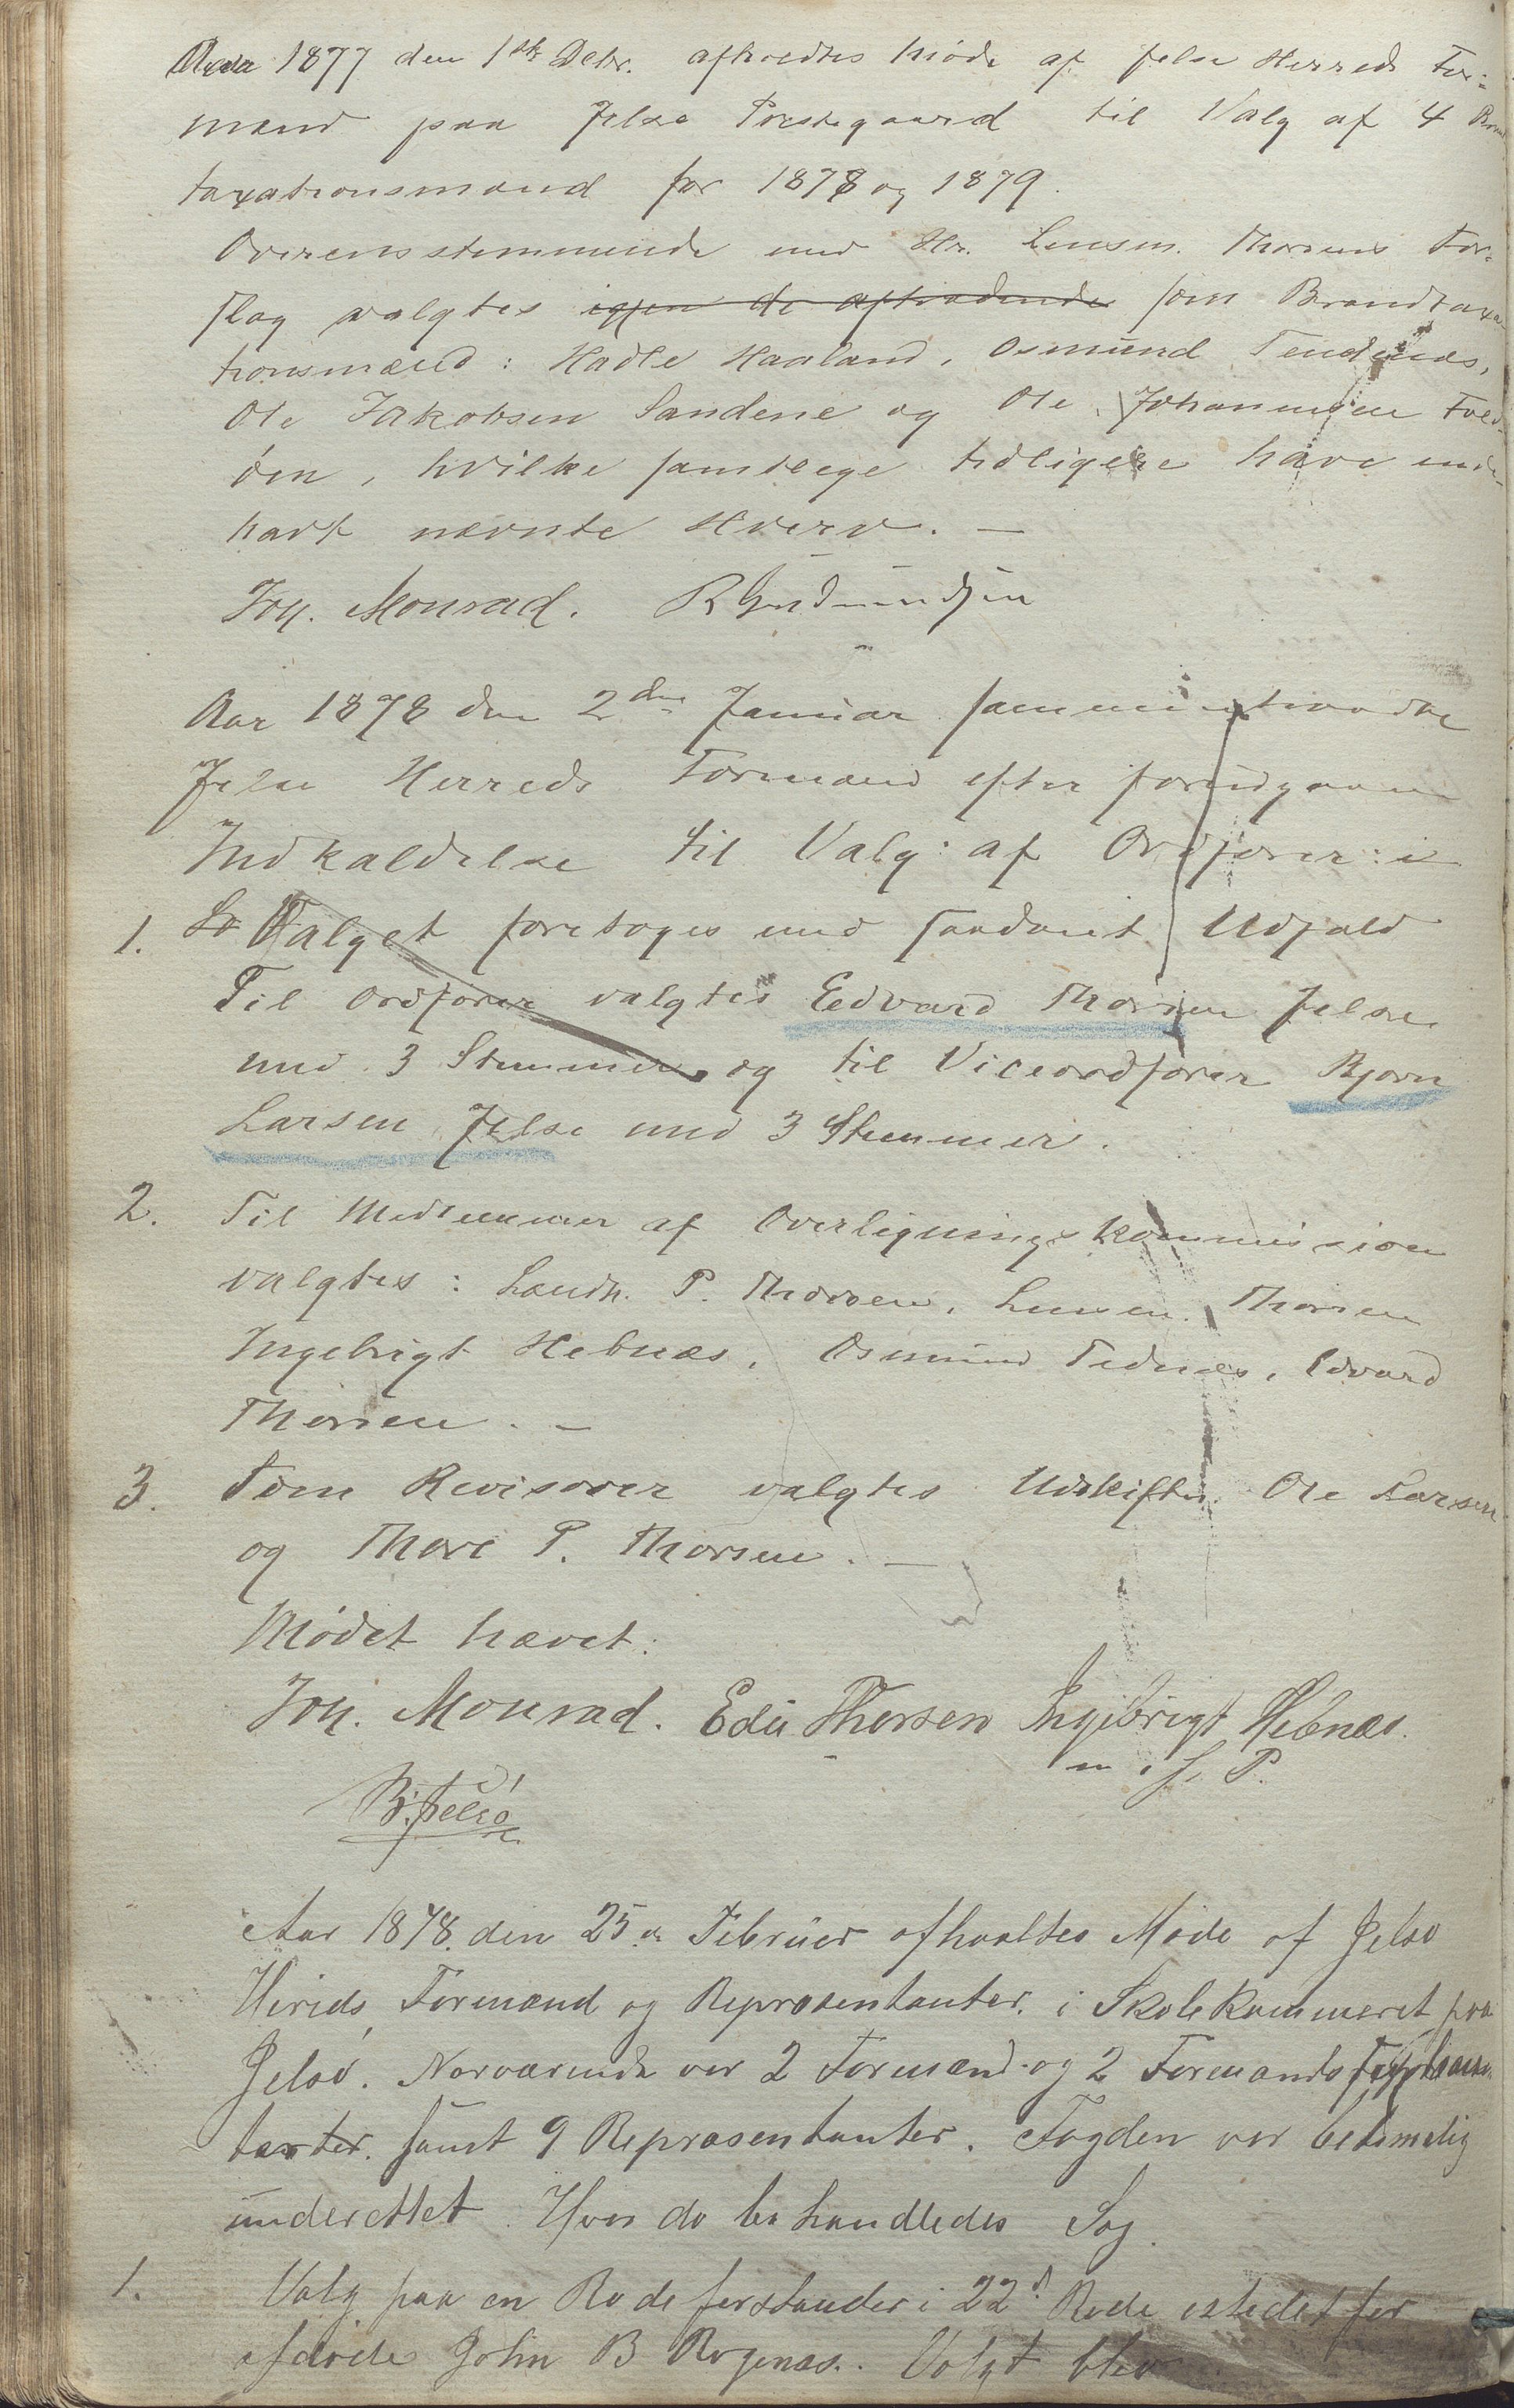 Aar 1877 den 1ste Debr. afholdtes Møde af Jelse Herreds For-
mænd paa Jelse Prestegaard til Valg af 4 Brand
taxationsmænd for 1878 og 1879.
Overensstemmende med Hr. Lensm. Thorsens For-
slag valgtes igjen de aftrædende som Brandtaxa
tionsmænd: Hadle Haaland, Osmund Tendenæs,
Ole Jakobsen Sandene og Ole Johannesen Fold-
øen, hvilke samtlige tidligere have inde-
havt nævnte Hverv. —
Joh. Monrad. R Gudmundsen
Aar 1878 den 2den Januar sammentraadte
Jelse Herreds Formænd efter forudgaaen
Indkaldelse til Valg af Ordfører:
1. Valget foretoges med saadant Udfald
Til Ordfører valgtes Eedvard Thorsen Jelse
med 3 Stemmer og til Viceordfører Bjørn
Larsen Jelse med 3 Stemmer.
2. Til Medlemmer af Overligningskommission
valgtes: Landh. P. Thorsen, Lensm. Thorsen
Ingebrigt Hebnæs, Osmund Tednæs, Edvard
Thorsen. —
3. Som Revisorer valgtes Udskiftn. Ole Larsen
og Thore P. Thorsen. —
Mødet hævet:
Joh. Monrad. Edv Thorsen Ingebrigt Hebnæs.
m. f. P.
B. Jelsø
Aar 1878. den 25de Februer afhooltes Møde af Jelsø
Herids Formænd og Repræsentanter. i Skolekammeret paa
Jelsø. Nærværende var 2 Formænd og 2 Formands
tanter. samt 9 Repræsentanter. Fogden var betimelig
underettet. Hvor da behandledes Sag.
1. Valg paa en Rodeforstander i 22d Rode istedet for
afdøde John B Rogenæs. Valgt blev